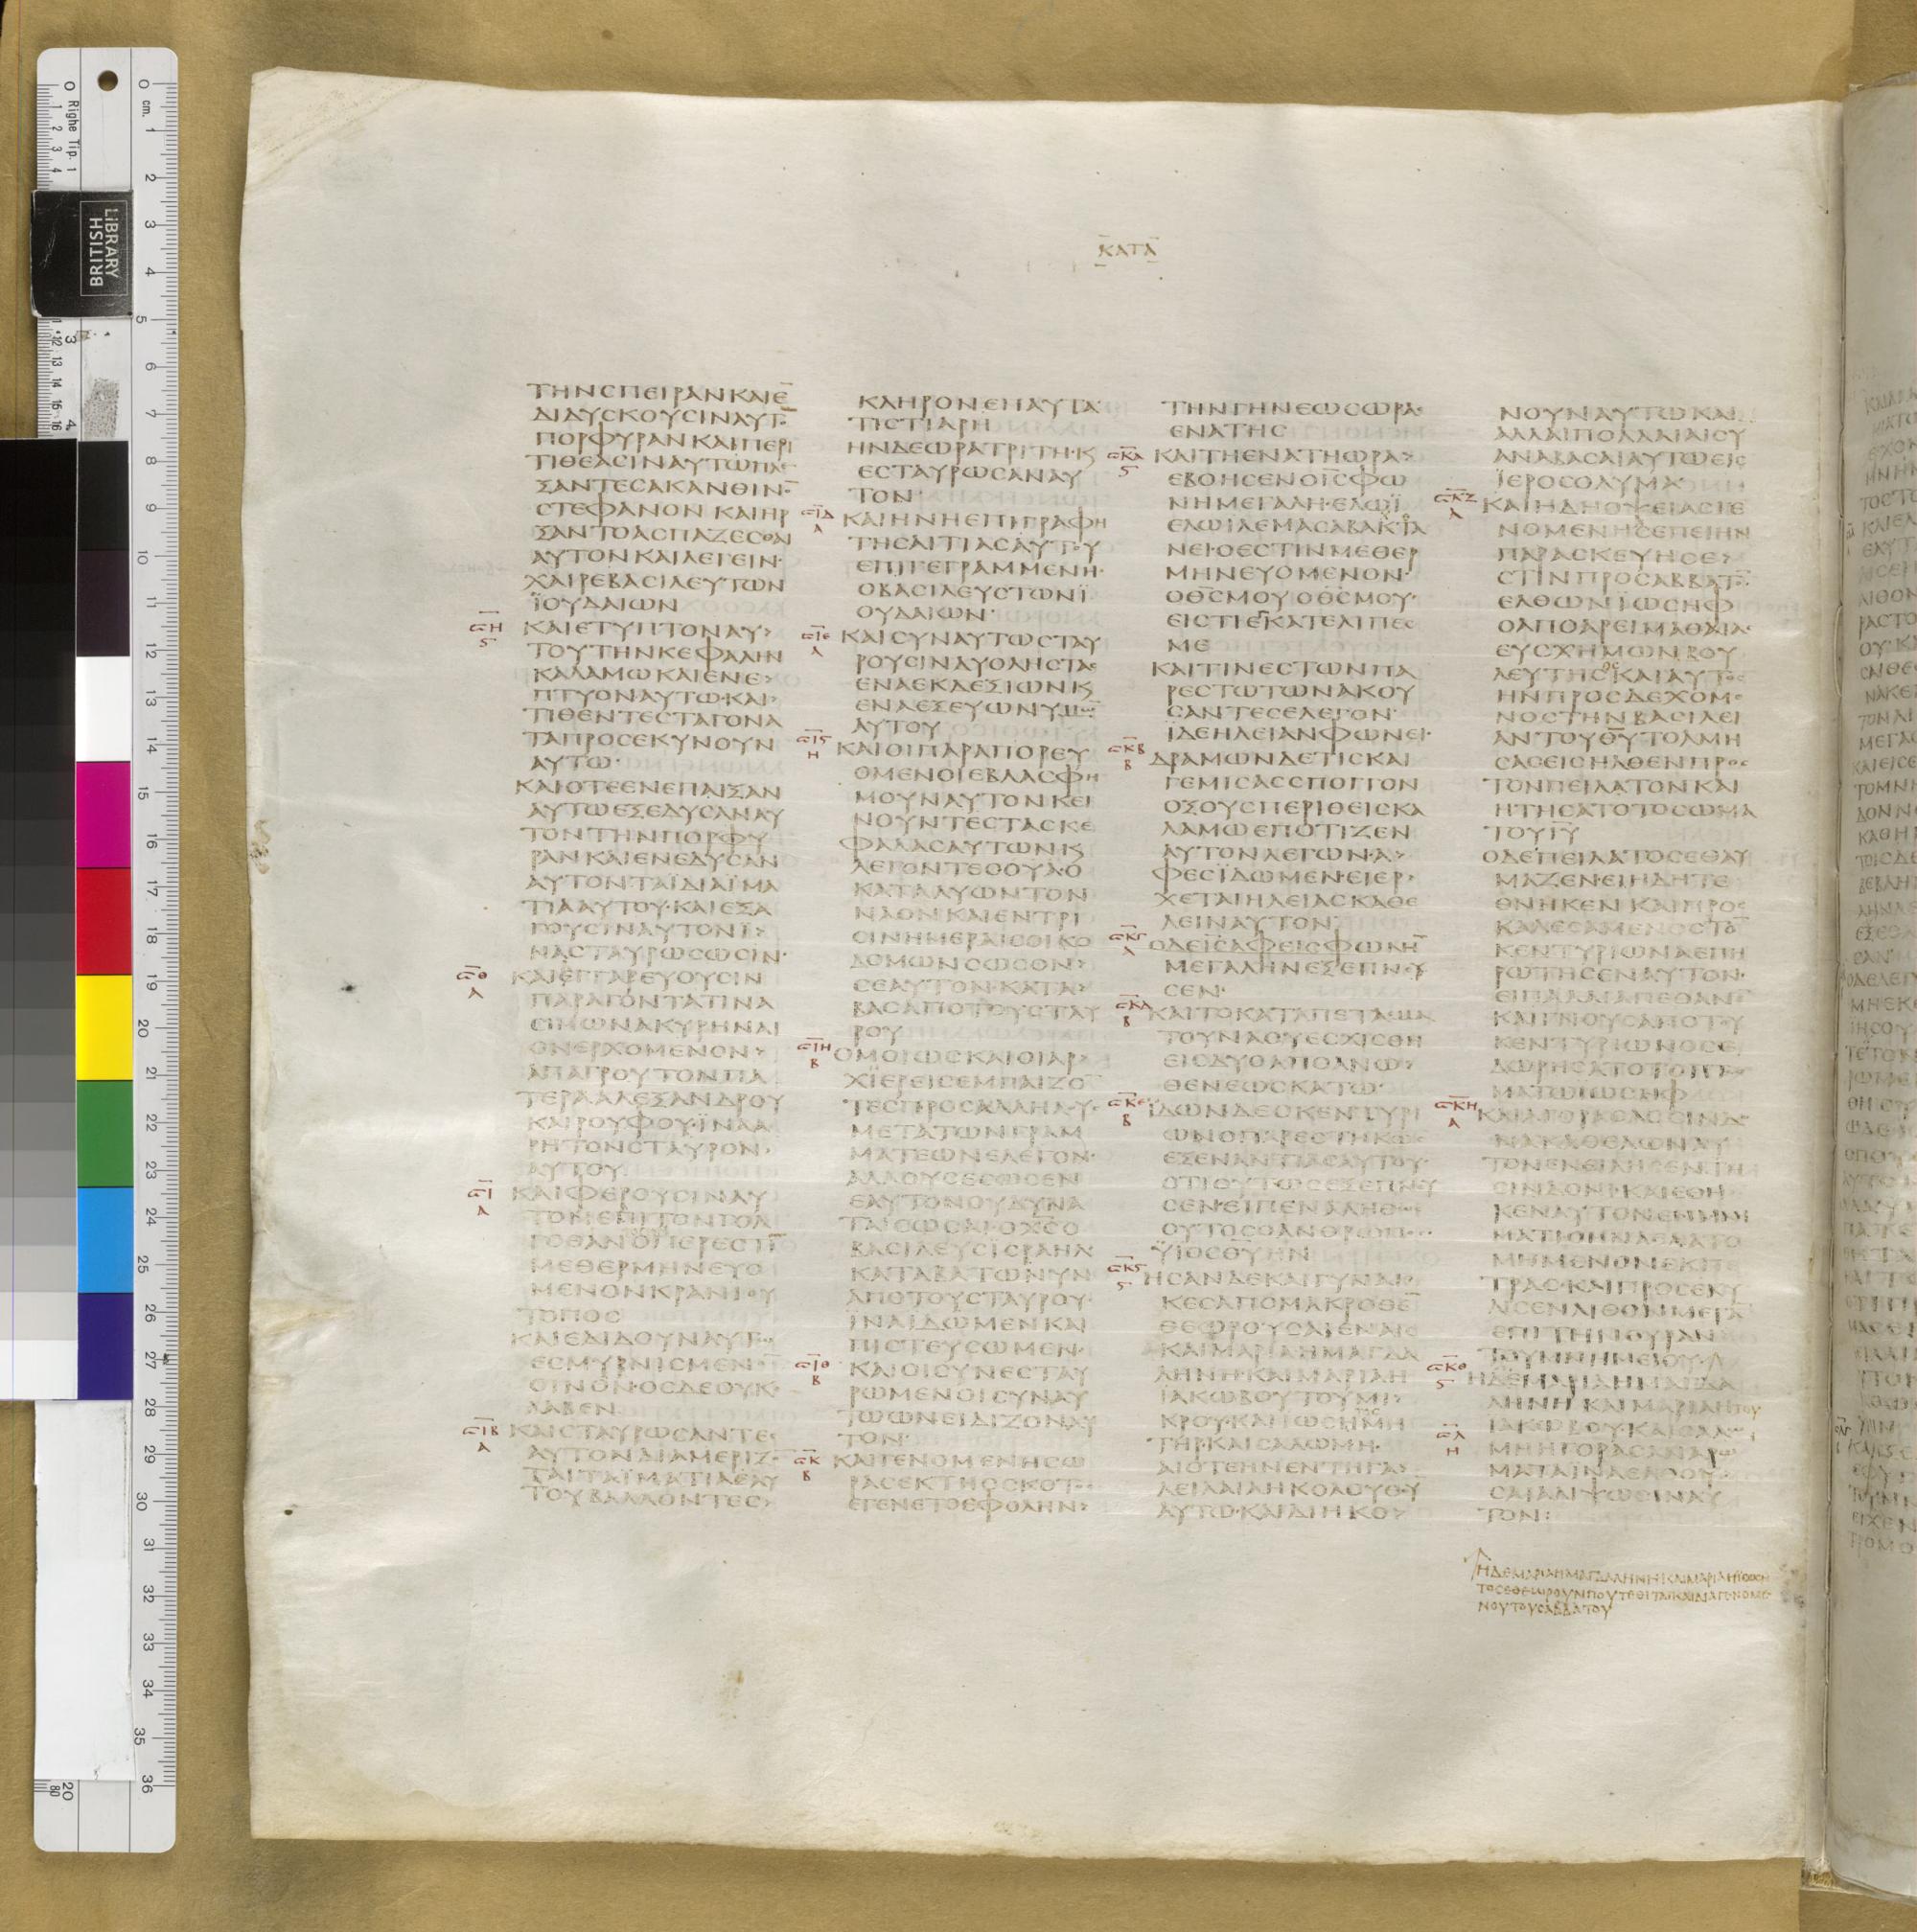 ΚΑΤΑ
ΤΗΝϹΠΕΙΡΑΝΚΑΙΕ̅
ΔΙΔΥϹΚΟΥϹΙΝΑΥΤ̅
ΠΟΡΦΥΡΑΝΚΑΙΠΕΡΙ
ΤΙΘΕΑϹΙΝΑΥΤΩΠΛΕ
ΞΑΝΤΕϹΑΚΑΝΘΙΝ̅
ϹΤΕΦΑΝΟΝΚΑΙΗΡ
ΞΑΝΤΟΑϹΠΑΖΕϹΘΑΙ
ΑΥΤΟΝΚΑΙΛΕΓΕΙΝ·
ΧΑΙΡΕΒΑϹΙΛΕΥΤΩΝ
ΪΟΥΔΑΙΩΝ
ΚΑΙΕΤΥΠΤΟΝΑΥ>
ΤΟΥΤΗΝΚΕΦΑΛΗΝ
ΚΑΛΑΜΩΚΑΙΕΝΕ>
ΠΤΥΟΝΑΥΤΩ·ΚΑΙ>
ΤΙΘΕΝΤΕϹΤΑΓΟΝΑ
ΤΑΠΡΟϹΕΚΥΝΟΥΝ
ΑΥΤΩ·
ΚΑΙΟΤΕΕΝΕΠΑΙΞΑΝ
ΑΥΤΩΕΞΕΔΥϹΑΝΑΥ
ΤΟΝΤΗΝΠΟΡΦΥ
ΡΑΝΚΑΙΕΝΕΔΥϹΑΝ
ΑΥΤΟΝΤΑΪΔΙΑΪΜΑ
ΤΙΑΑΥΤΟΥ·ΚΑΙΕΞΑ
ΓΟΥϹΙΝΑΥΤΟΝΪ>
ΝΑϹΤΑΥΡΩϹΩϹΙΝ·
ΚΑΙΕΓΓΑΡΕΥΟΥϹΙΝ
ΠΑΡΑΓΟΝΤΑΤΙΝΑ
ϹΙΜΩΝΑΚΥΡΗΝΑΙ
ΟΝΕΡΧΟΜΕΝΟΝ>
ΑΠΑΓΡΟΥΤΟΝΠΑ
ΤΕΡΑΑΛΕΞΑΝΔΡΟΥ
ΚΑΙΡΟΥΦΟΥ·ΪΝΑΑ
ΡΗΤΟΝϹΤΑΥΡΟΝ·
ΑΥΤΟΥ
ΚΑΙΦΕΡΟΥϹΙΝΑΥ
ΤΟΝΕΠΙΤΟΝΓΟΛ
ΓΟΘΑΝΟΠΕΡΕϹΤΙ̅
ΜΕΘΕΡΜΗΝΕΥΟ
ΜΕΝΟΝΚΡΑΝΙΟΥ
ΤΟΠΟϹ
ΚΑΙΕΔΙΔΟΥΝΑΥΤΩ
ΕϹΜΥΡΝΙϹΜΕΝ
ΟΙΝΟΝ·ΟϹΔΕΟΥΚ
ΛΑΒΕΝ
ΚΑΙϹΤΑΥΡΩϹΑΝΤΕϹ
ΑΥΤΟΝΔΙΑΜΕΡΙΖ
ΤΑΙΤΑΪΜΑΤΙΑΕΑΥ
ΤΟΥΒΑΛΛΟΝΤΕϹ>
ΚΛΗΡΟΝΕΠΑΥΤΑ
ΤΙϹΤΙΑΡΗ
ΗΝΔΕΩΡΑΤΡΙΤΗ·Κ
ΕϹΤΑΥΡΩϹΑΝΑΥ
ΤΟΝ
ΚΑΙΗΝΗΕΠΙΓΡΑΦΗ
ΤΗϹΑΙΤΙΑϹΑΥΤΟΥ
ΕΠΙΓΕΓΡΑΜΜΕΝΗ·
ΟΒΑϹΙΛΕΥϹΤΩΝΪ
ΟΥΔΑΙΩΝ·
ΚΑΙϹΥΝΑΥΤΩϹΤΑΥ
ΡΟΥϹΙΝΔΥΟΛΗϹΤΑϹ
ΕΝΑΕΚΔΕΞΙΩΝΚ
ΕΝΑΕΞΕΥΩΝΥΜΩ̅
ΑΥΤΟΥ
ΚΑΙΟΙΠΑΡΑΠΟΡΕΥ
ΟΜΕΝΟΙΕΒΛΑϹΦΗ
ΜΟΥΝΑΥΤΟΝΚΕΙ
ΝΟΥΝΤΕϹΤΑϹΚΕ
ΦΑΛΑϹΑΥΤΩΝΚ
ΛΕΓΟΝΤΕϹΟΥΑ·Ο
ΚΑΤΑΛΥΩΝΤΟΝ
ΝΑΟΝΚΑΙΕΝΤΡΙ
ϹΙΝΗΜΕΡΑΙϹΟΙΚΟ
ΔΟΜΩΝϹΩϹΟΝ>
ϹΕΑΥΤΟΝ·ΚΑΤΑ>
ΒΑϹΑΠΟΤΟΥϹΤΑΥ
ΡΟΥ
ΟΜΟΙΩϹΚΑΙΟΙΑΡ>
ΧΪΕΡΕΙϹΕΜΠΑΙΖΟ̅
ΤΕϹΠΡΟϹΑΛΛΗΛΟΥϹ
ΜΕΤΑΤΩΝΓΡΑΜ
ΜΑΤΕΩΝΕΛΕΓΟΝ·
ΑΛΛΟΥϹΕϹΩϹΕΝ
ΕΑΥΤΟΝΟΥΔΥΝΑ
ΤΑΙϹΩϹΑΙ·ΟΧ̅Ϲ̅Ο
ΒΑϹΙΛΕΥϹΙϹΡΑΗΛ
ΚΑΤΑΒΑΤΩΝΥΝ
ΑΠΟΤΟΥϹΤΑΥΡΟΥ·
ΪΝΑΪΔΩΜΕΝΚΑΙ
ΠΙϹΤΕΥϹΩΜΕΝ·
ΚΑΙΟΙϹΥΝΕϹΤΑΥ
ΡΩΜΕΝΟΙϹΥΝΑΥ
ΤΩΩΝΕΙΔΙΖΟΝΑΥ
ΤΟΝ·
ΚΑΙΓΕΝΟΜΕΝΗϹΩ
ΡΑϹΕΚΤΗϹϹΚΟΤΟϹ
ΕΓΕΝΕΤΟΕΦΟΛΗΝ>
ΤΗΝΓΗΝΕΩϹΩΡΑϹ
ΕΝΑΤΗϹ
ΚΑΙΤΗΕΝΑΤΗΩΡΑ>
ΕΒΟΗϹΕΝΟΙ̅Ϲ̅ΦΩ
ΝΗΜΕΓΑΛΗ·ΕΛΩΪ
ΕΛΩΙΛΕΜΑϹΑΒΑΚΤΑ
ΝΕΙ·ΟΕϹΤΙΝΜΕΘΕΡ
ΜΗΝΕΥΟΜΕΝΟΝ·
ΟΘ̅Ϲ̅ΜΟΥΟΘ̅Ϲ̅ΜΟΥ·
ΕΙϹΤΙΕΓΚΑΤΕΛΙΠΕϹ
ΜΕ
ΚΑΙΤΙΝΕϹΤΩΝΠΑ
ΡΕϹΤΩΤΩΝΑΚΟΥ
ϹΑΝΤΕϹΕΛΕΓΟΝ·
ΪΔΕΗΛΕΙΑΝΦΩΝΕΙ·
ΔΡΑΜΩΝΔΕΤΙϹΚΑΙ
ΓΕΜΙϹΑϹϹΠΟΓΓΟΝ
ΟΞΟΥϹΠΕΡΙΘΕΙϹΚΑ
ΛΑΜΩΕΠΟΤΙΖΕΝ
ΑΥΤΟΝΛΕΓΩΝ·Α>
ΦΕϹΪΔΩΜΕΝ·ΕΙΕΡ>
ΧΕΤΑΙΗΛΕΙΑϹΚΑΘΕ
ΛΕΙΝΑΥΤΟΝ
ΟΔΕΙ̅Ϲ̅ΑΦΕΙϹΦΩΝΗ̅
ΜΕΓΑΛΗΝΕΞΕΠΝΕΥ
ϹΕΝ·
ΚΑΙΤΟΚΑΤΑΠΕΤΑϹΜΑ
ΤΟΥΝΑΟΥΕϹΧΙϹΘΗ
ΕΙϹΔΥΟΑΠΟΑΝΩ>
ΘΕΝΕΩϹΚΑΤΩ·
ΪΔΩΝΔΕΟΚΕΝΤΥΡΙ
ΩΝΟΠΑΡΕϹΤΗΚΩϹ
ΕΞΕΝΑΝΤΙΑϹΑΥΤΟΥ·
ΟΤΙΟΥΤΩϹΕΞΕΠΝΕΥ
ϹΕΝ·ΕΙΠΕΝΑΛΗΘΩϹ
ΟΥΤΟϹΟΑΝΘΡΩΠΟϹ
ΫΙΟϹΘ̅Υ̅ΗΝ
ΗϹΑΝΔΕΚΑΙΓΥΝΑΙ
ΚΕϹΑΠΟΜΑΚΡΟΘΕ̅
ΘΕΩΡΟΥϹΑΙΕΝΑΙϹ
ΚΑΙΜΑΡΙΑΗΜΑΓΔΑ
ΛΗΝΗ·ΚΑΙΜΑΡΙΑΗ
ΪΑΚΩΒΟΥΤΟΥΜΙ>
ΚΡΟΥ·ΚΑΙΙΩϹΗΜΗ
ΤΗΡ·ΚΑΙϹΑΛΩΜΗ·
ΑΙΟΤΕΗΝΕΝΤΗΓΑ>
ΛΕΙΛΑΙΑΗΚΟΛΟΥΘΟΥ
ΑΥΤΩ·ΚΑΙΔΙΗΚΟ>
ΝΟΥΝΑΥΤΩΚΑΙ
ΑΛΛΑΙΠΟΛΛΑΙΑΙϹΥ
ΑΝΑΒΑϹΑΙΑΥΤΩΕΙϹ
ΪΕΡΟϹΟΛΥΜΑ
ΚΑΙΗΔΗΟΨΕΙΑϹΓΕ
ΝΟΜΕΝΗϹΕΠΕΙΗΝ
ΠΑΡΑϹΚΕΥΗΟΕ>
ϹΤΙΝΠΡΟϹΑΒΒΑΤΟ̅
ΕΛΘΩΝΪΩϹΗΦ
ΟΑΠΟΑΡΕΙΜΑΘΑΙΑϹ
ΕΥϹΧΗΜΩΝΒΟΥ
ΛΕΥΤΗϹΟϹΚΑΙΑΥΤΟϹ
ΗΝΠΡΟϹΔΕΧΟΜΕ
ΝΟϹΤΗΝΒΑϹΙΛΕΙ
ΑΝΤΟΥΘ̅Υ̅ΤΟΛΜΗ
ϹΑϹΕΙϹΗΛΘΕΝΠΡΟϹ
ΤΟΝΠΕΙΛΑΤΟΝΚΑΙ
ΗΤΗϹΑΤΟΤΟϹΩΜΑ
ΤΟΥΙ̅Υ̅
ΟΔΕΠΕΙΛΑΤΟϹΕΘΑΥ
ΜΑΖΕΝ·ΕΙΗΔΗΤΕ
ΘΝΗΚΕΝΚΑΙΠΡΟϹ
ΚΑΛΕϹΑΜΕΝΟϹΤΟ̅
ΚΕΝΤΥΡΙΩΝΑΕΠΗ
ΡΩΤΗϹΕΝΑΥΤΟΝ·
ΕΙΠΑΛΑΙΑΠΕΘΑΝΕ̅
ΚΑΙΓΝΟΥϹΑΠΟΤΟΥ
ΚΕΝΤΥΡΙΩΝΟϹΕ
ΔΩΡΗϹΑΤΟΤΟΠΤΩ
ΜΑΤΩΙΩϹΗΦ
ΚΑΙΑΓΟΡΑϹΑϹϹΙΝΔΟ
ΝΑΚΑΘΕΛΩΝΑΥ
ΤΟΝΕΝΕΙΛΗϹΕΝΤΗ
ϹΙΝΔΟΝΙ·ΚΑΙΕΘΗ
ΚΕΝΑΥΤΟΝΕΝΜΝΗ
ΜΑΤΙΟΗΝΛΕΛΑΤΟ
ΜΗΜΕΝΟΝΕΚΠΕ
ΤΡΑϹ·ΚΑΙΠΡΟϹΕΚΥ
ΛΙϹΕΝΛΙΘΟΝΜΕΓΑ̅
ΕΠΙΤΗΝΘΥΡΑΝ
ΤΟΥΜΝΗΜΕΙΟΥ
ΗΔΕΜΑΡΙΑΗΜΑΓΔΑ
ΛΗΝΗΚΑΙΜΑΡΙΑΗΤΟΥ
ΙΑΚΩΒΟΥΚΑΙϹΑΛΩ
ΜΗΗΓΟΡΑϹΑΝΑΡΩ
ΜΑΤΑΪΝΑΕΛΘΟΥ
ϹΑΙΑΛΙΨΩϹΙΝΑΥ
ΤΟΝ:
ΗΔΕΜΑΡΙΑΗΜΑΓΔΑΛΗΝΗΚΑΙΜΑΡΙΑΗΪΩϹΗ
ΤΟϹΕΘΕΩΡΟΥΝΠΟΥΤΕΘΙΤΑΙΚΑΙΔΙΑΓΕΝΟΜΕ
ΝΟΥΤΟΥϹΑΒΒΑΤΟΥ
BRITISH
LIBRARY